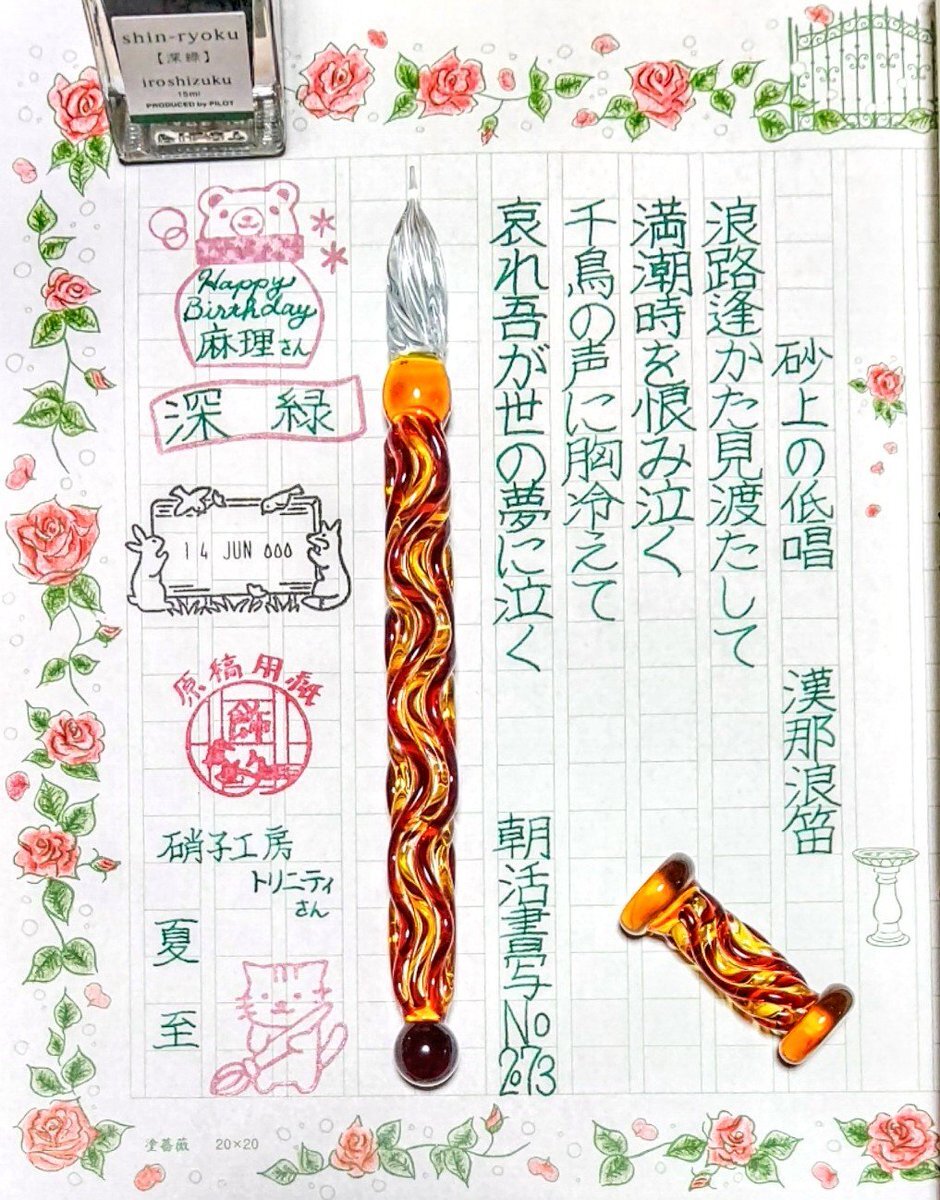 shin-ryoku
【深緑】
iroshizuku
15ml
PRODUCED by PILOT
砂上の低唱　漢那浪笛
浪路逢かた見渡たして
満潮時を恨み泣く
千鳥の声に胸冷えて
哀れ吾が世の夢に泣く
朝活書写No2073
Happy
Birthday
麻理さん
深緑
14 JUN
原稿用紙
飾
硝子工房
トリニティ
さん
夏至
塗薔薇 20×20